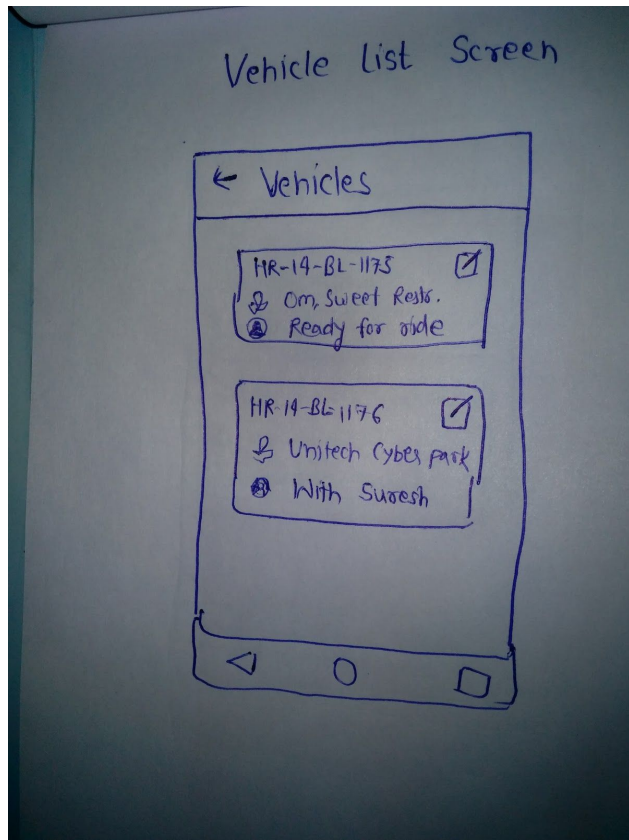 Vehicle List Screen
← Vehicles
HR-14-BL-1175
Om, Sweet Restr.
Ready for ride
HR-14-BL-1176
Unitech Cyber park
With Suresh